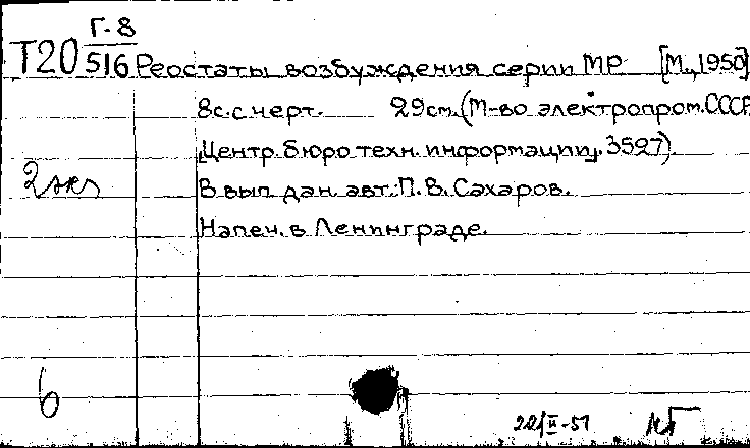 Г-8
Т20 516 Реостаты возбуждения серии МР [М., 1950]
8с. с черт. 29см. (М-во электропром. СССР
Центр. бюро техн. информации. 3527).
2 экз
В вып. дан. авт.: П. В. Сахаров.
Напеч. в Ленинграде.
6
22/II-51